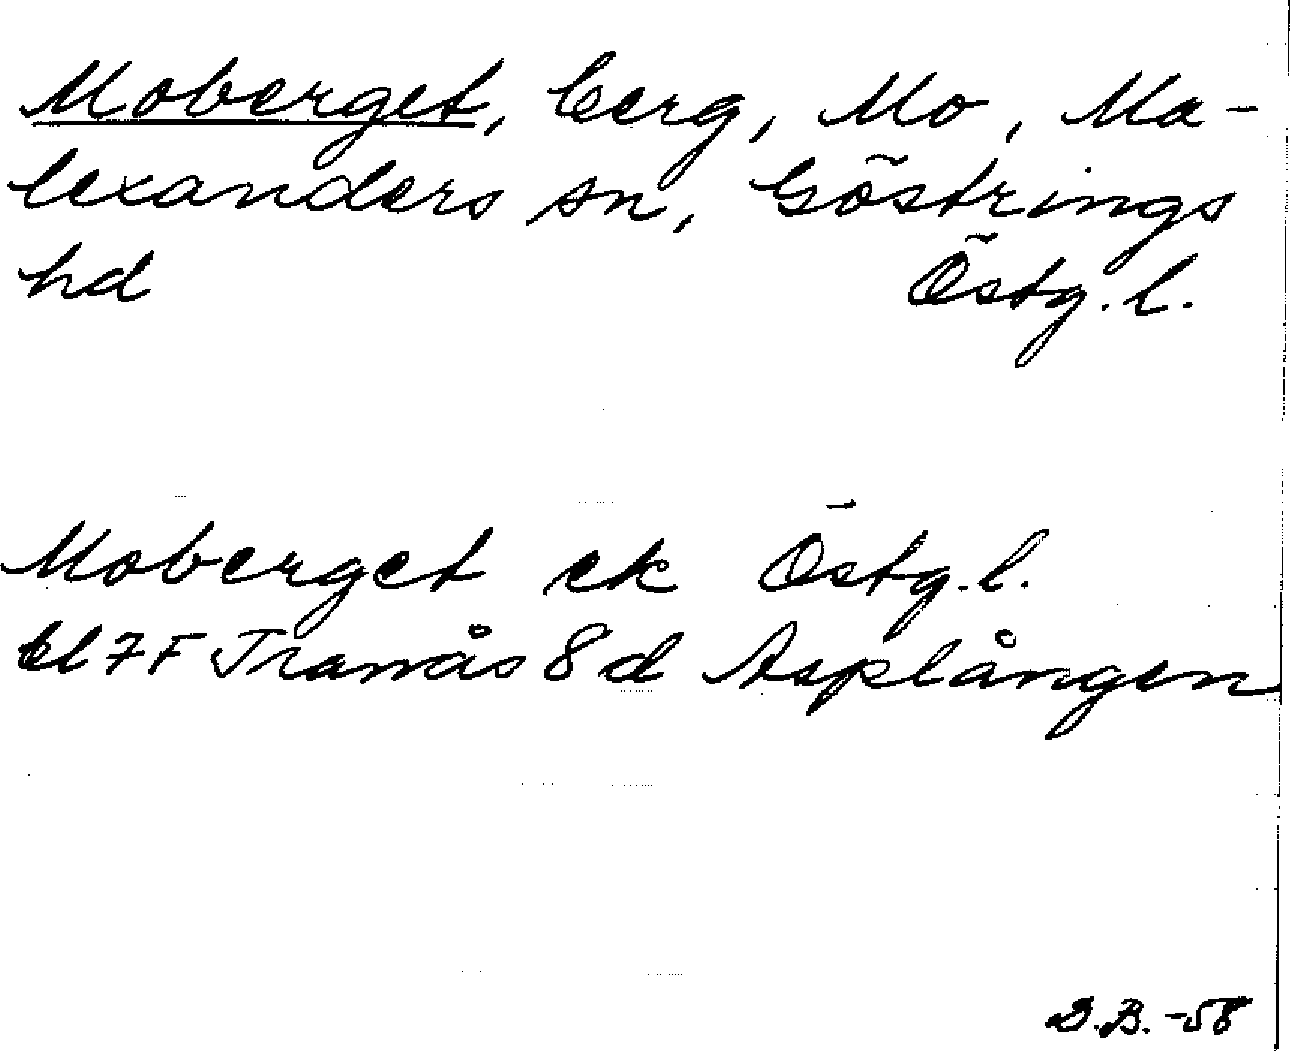 Moberget, berg, Mo, Ma-
lexanders sn, Göstrings
hd Östg. l.
Moberget ek Östg. l.
bl 7F Tranås 8d Asplången
D.B. -58